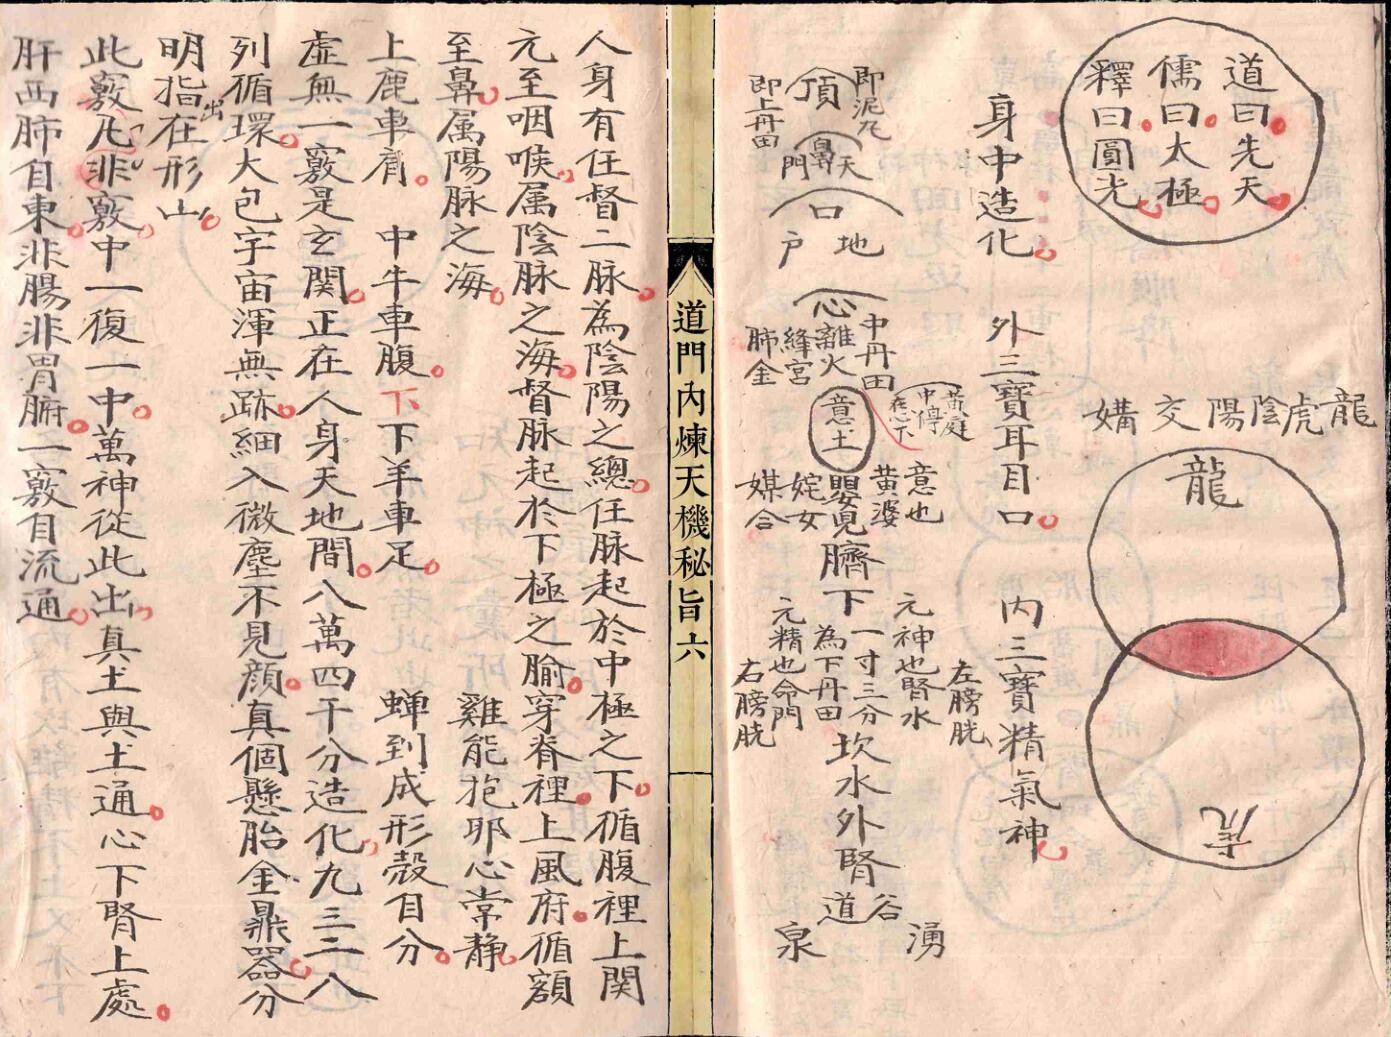 道曰先天
儒曰太極
釋曰圓光
龍虎陰陽交媾
龍
虎
身中造化
外三寶耳目口
內三寶精氣神
頂
即泥丸
即上丹田
天
鼻
門
地
口
戶
心
離火
絳宮
肺金
中丹田
黃庭
中停
在心下
意土
意也
黃婆
嬰兒
姹女
媒合
臍下
一寸三分
為下丹田
元神也腎水
左膀胱
元精也命門
右膀胱
坎水外腎
谷
道
湧
泉
道門內煉天機秘旨六
人身有任督二脉為陰陽之總任脉起於中極之下循腹裡上関
元至咽喉属陰脉之海督脉起於下極之腧穿脊裡上風府循額
至鼻属陽脉之海 雞能抱卵心常静
上鹿車肩 中牛車腹 下下羊車足 蝉到成形殼自分
虛無一竅是玄関正在人身天地間八萬四千分造化九三二八
列循環大包宇宙渾無跡細入微塵不見顏真個懸胎金鼎器分
明指在形山
出
此竅凡非竅中一復一中萬神從此出真土與土通心下腎上處
肝西肺自東非腸非胃腑一竅自流通